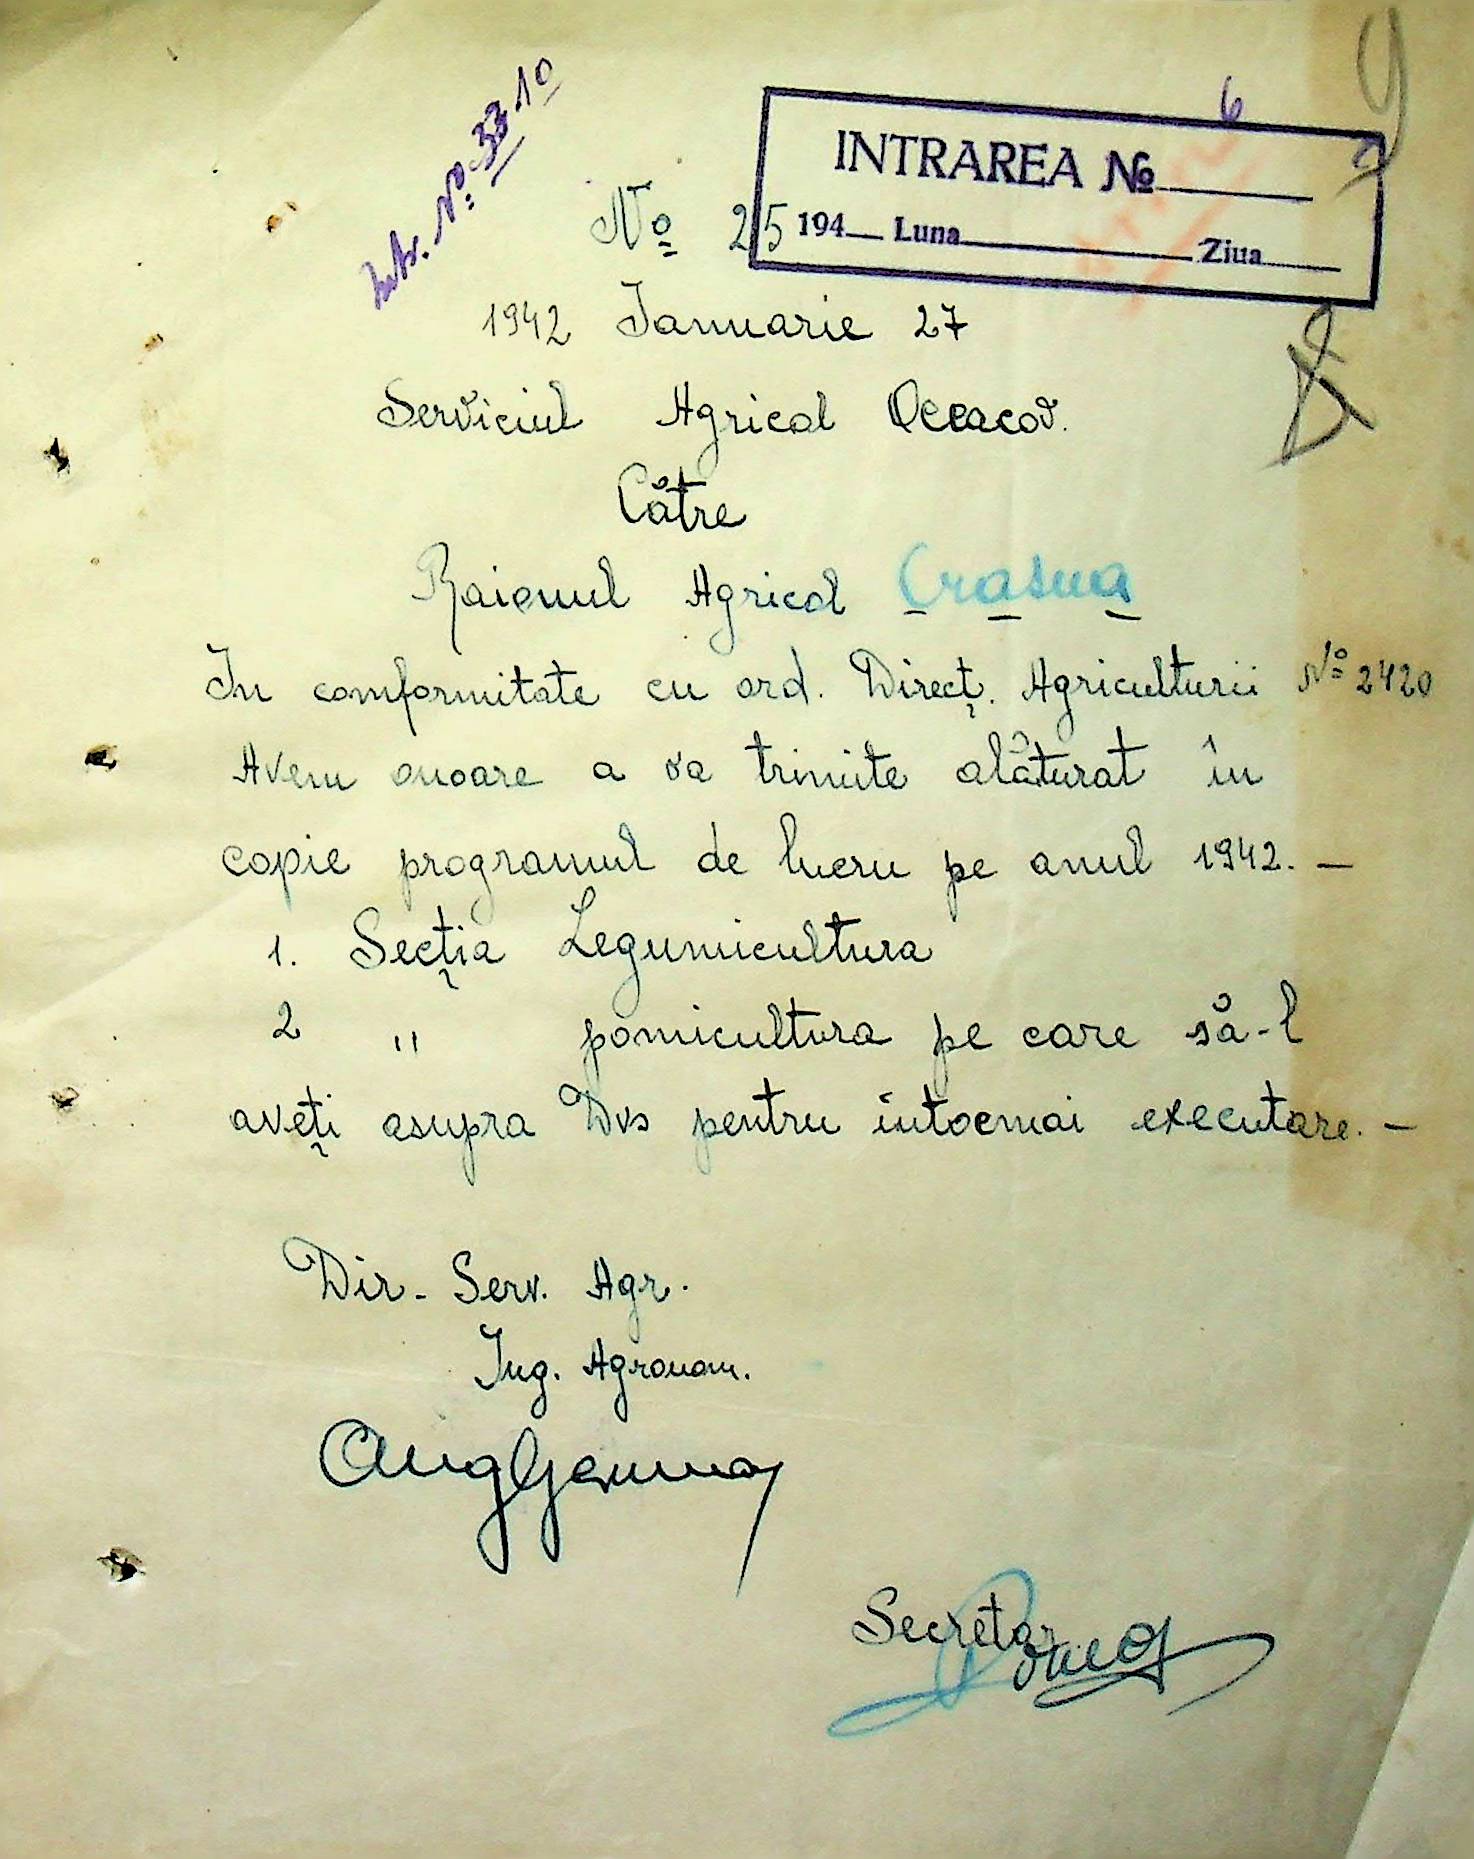 Intr. No. 33
INTRAREA №
194 Luna Ziua
No 25
1942 Ianuarie 27
Serviciul Agricol Oceacov.
Către
Raionul Agricol Crasna
In comformitate cu ord. Direcț. Agriculturii No 2420
Avem onoare a va trimite alăturat în
copie programul de lucru pe anul 1942. —
1. Secția Legumicultura
2 " pomicultura pe care să-l
aveți asupra Dvs pentru întocmai executare. —
Dir. Serv. Agr.
Ing. Agronom.
Secretar